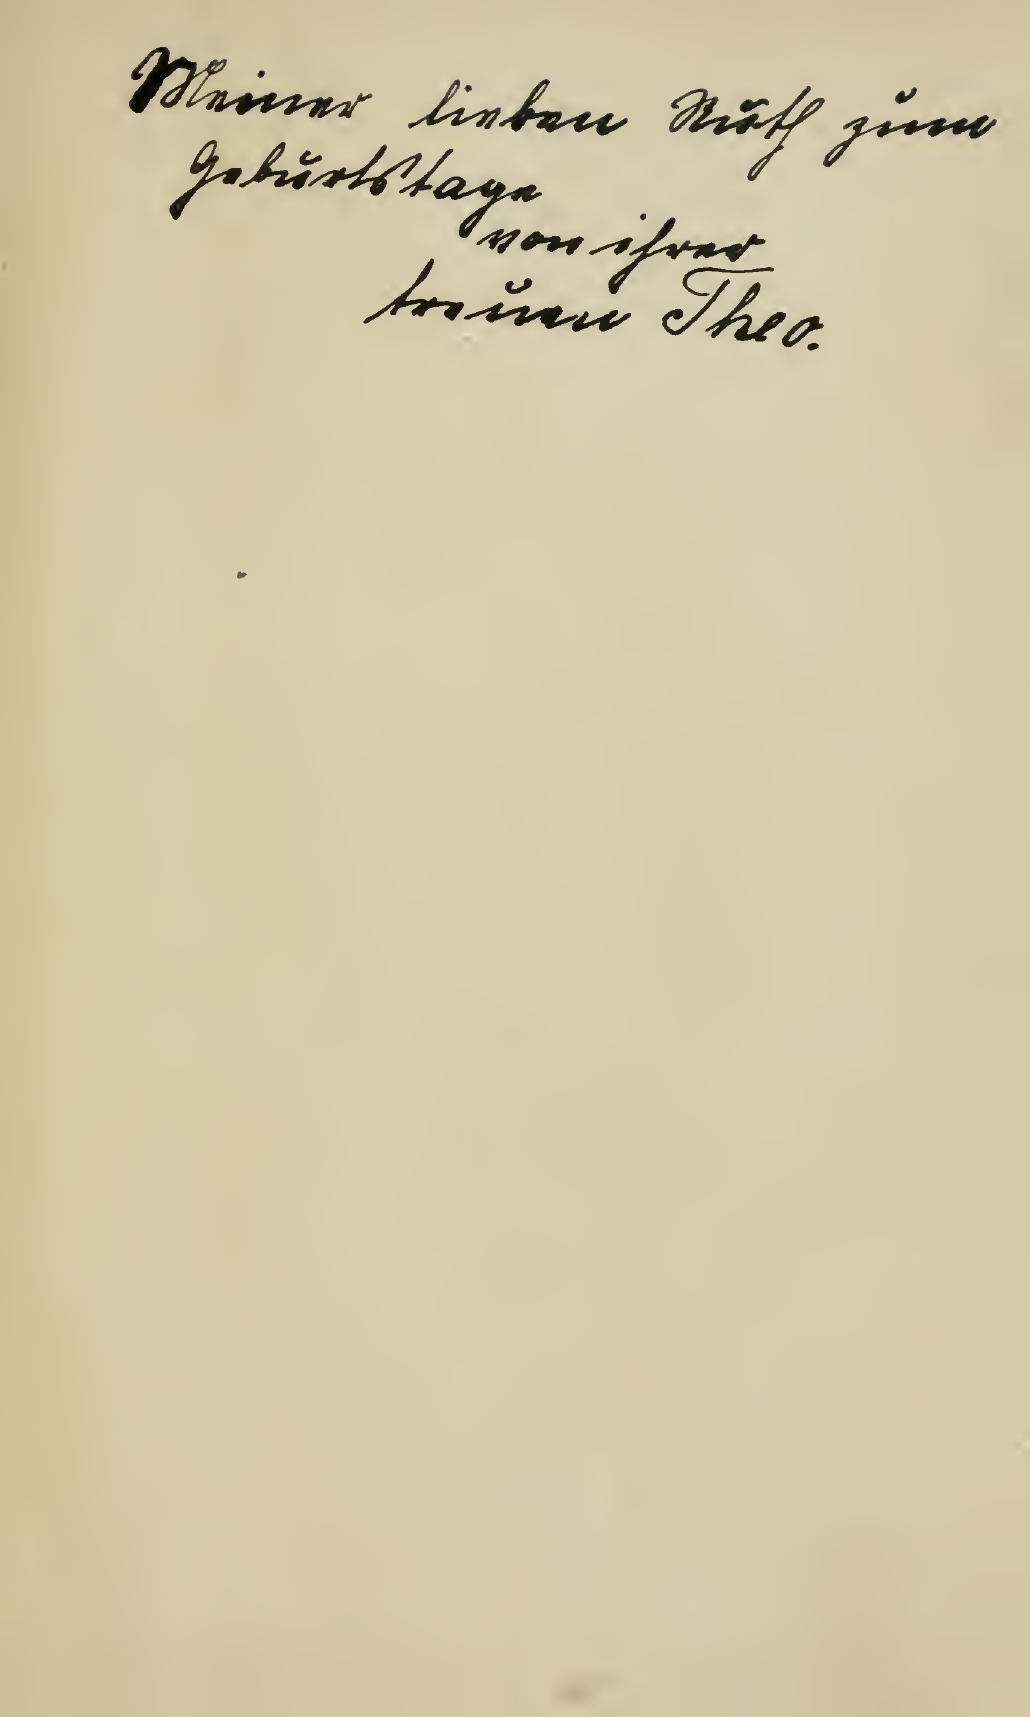 Meiner lieben Ruth zum
Geburtstage
von ihrer
treuen Theo.